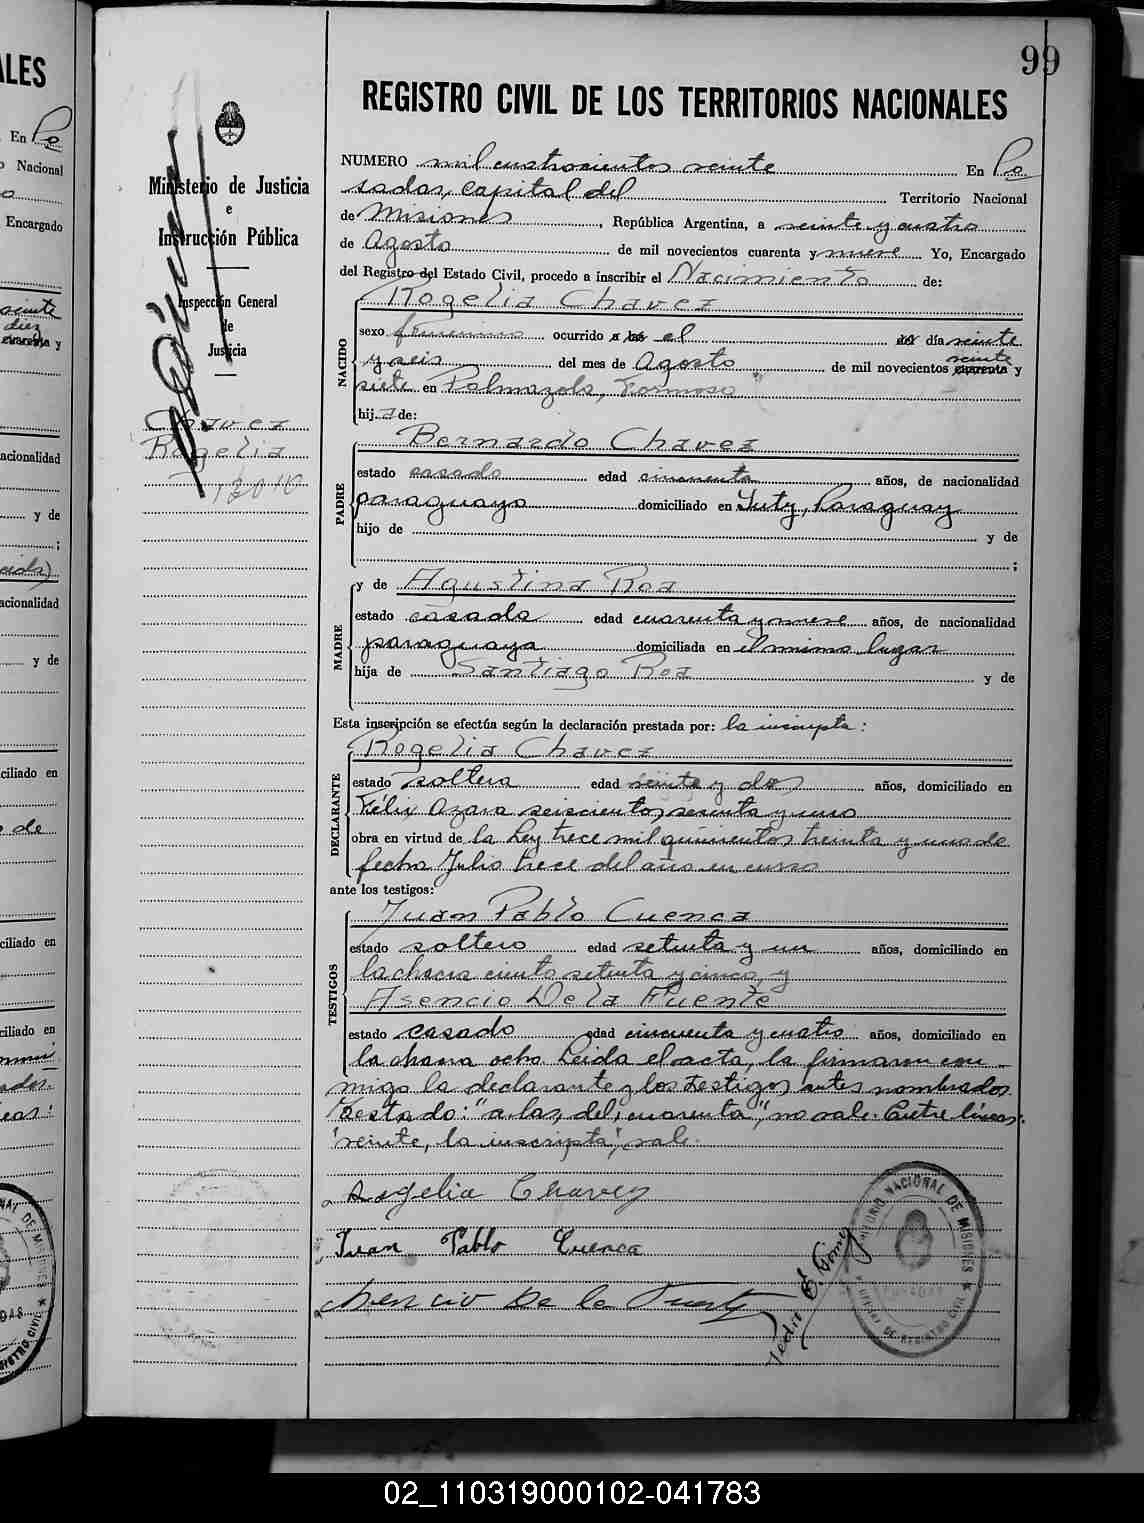 99
REGISTRO CIVIL DE LOS TERRITORIOS NACIONALES
Ministerio de Justicia
e
Instrucción Pública
Inspección General
de
Justicia
Chavez
Rogelia
NUMERO mil cuatrocientos veinte En Po
sadas, capital del Territorio Nacional
de Misiones, República Argentina, a veinte y cuatro
de Agosto de mil novecientos cuarenta y nueve Yo, Encargado
del Registro del Estado Civil, procedo a inscribir el Nacimiento de:
NACIDO
Rogelia Chavez
sexo femenino ocurrido a las el del día veinte
y seis del mes de Agosto de mil novecientos cuarenta veinte y
siete en Palmazola, Formosa
hija de:
PADRE
Bernardo Chavez
estado casado edad cincuenta años, de nacionalidad
paraguaya domiciliado en Yuty, Paraguay
hijo de y de
;
MADRE
y de Agustina Roa
estado casada edad cuarenta y nueve años, de nacionalidad
paraguaya domiciliada en el mismo lugar
hija de Santiago Roa y de
Esta inscripción se efectúa según la declaración prestada por: la inscripta:
DECLARANTE
Rogelia Chavez
estado soltera edad veinte y dos años, domiciliado en
Félix Azara seiscientos sesenta y uno
obra en virtud de la Ley trece mil quinientos treinta y uno de
fecha Julio trece del año en curso
ante los testigos:
TESTIGOS
Juan Pablo Cuenca
estado soltero edad setenta y un años, domiciliado en
la chacra ciento setenta y cinco, y
Asencio De la Fuente
estado casado edad cincuenta y cuatro años, domiciliado en
la chacra ocho. Leida el acta, la firmaron con
migo la declarante y los testigos antes nombrados.
Testado: "a las, del, cuarenta", no vale. Entre líneas:
"veinte, la inscripta", vale.
Rogelia Chavez
Juan Pablo Cuenca
Asencio De la Fuente
TERRITORIO NACIONAL DE MISIONES
POSADAS
02_110319000102-041783